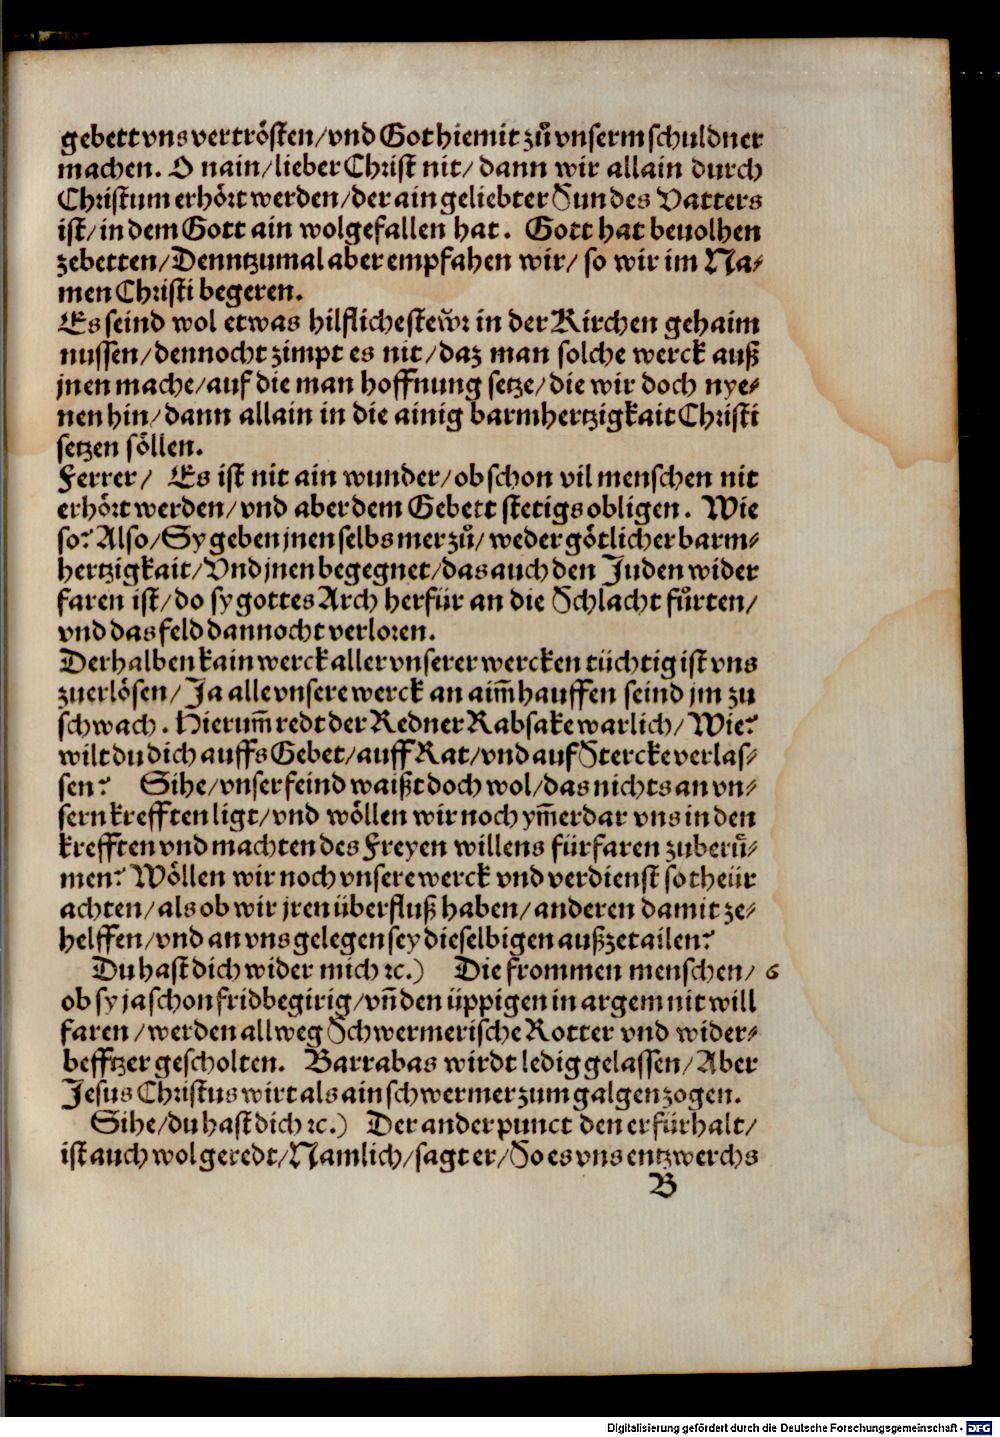 gebett vns vertrösten/vnd Got hiemit zů vnserm schuldner
machen. O nain/lieber Christ nit/ dann wir allain durch
Christum erhört werden/der ain geliebter Sun des Vatters
ist/in dem Gott ain wolgefallen hat. Gott hat beuolhen
zebetten/Denntzumal aber empfahen wir/ so wir im Na-
men Christi begeren.
Es seind wol etwas hilfliche stewr in der Kirchen gehaim
nussen/dennocht zimpt es nit/daz man solche werck auß
jnen mache/auf die man hoffnung setze/die wir doch nye-
nen hin/dann allain in die ainig barmhertzigkait Christi
setzen söllen.
Ferrer/ Es ist nit ain wunder/ob schon vil menschen nit
erhört werden/vnd aber dem Gebett stetigs obligen. Wie
so? Also/Sy geben jnen selbs mer zů/weder götlicher barm-
hertzigkait/Vnd jnen begegnet/das auch den Juden wider
faren ist/do sy gottes Arch herfür an die Schlacht fůrten/
vnd das feld dannocht verloren.
Derhalben kain werck aller vnserer wercken tüchtig ist vns
zuerlösen/Ja alle vnsere werck an aim̃ hauffen seind jm zu
schwach. Hierum̃ redt der Redner Rabsake warlich/Wie?
wilt du dich auffs Gebet/auff Rat/vnd auf Stercke verlas-
sen? Sihe/vnser feind waißt doch wol/das nichts an vn-
sern krefften ligt/vnd wöllen wir noch ym̃erdar vns in den
krefften vnd machten des Freyen willens fürfaren zuberů-
men? Wöllen wir noch vnsere werck vnd verdienst so theür
achten/als ob wir jren überfluß haben/anderen damit ze-
helffen/vnd an vns gelegen sey dieselbigen außzetailen?
Du hast dich wider mich ꝛc.) Die frommen menschen/ 6
ob sy ja schon fridbegirig/vñ den üppigen in argem nit will
faren/werden allweg Schwermerische Rotter vnd wider-
befftzer gescholten. Barrabas wirdt ledig gelassen/Aber
Jesus Christus wirt als ain schwermer zum galgen zogen.
Sihe/du hast dich ꝛc.) Der ander punct den er fürhalt/
ist auch wol geredt/Namlich/sagt er/So es vns entzwerchs
B
Digitalisierung gefördert durch die Deutsche Forschungsgemeinschaft - DFG